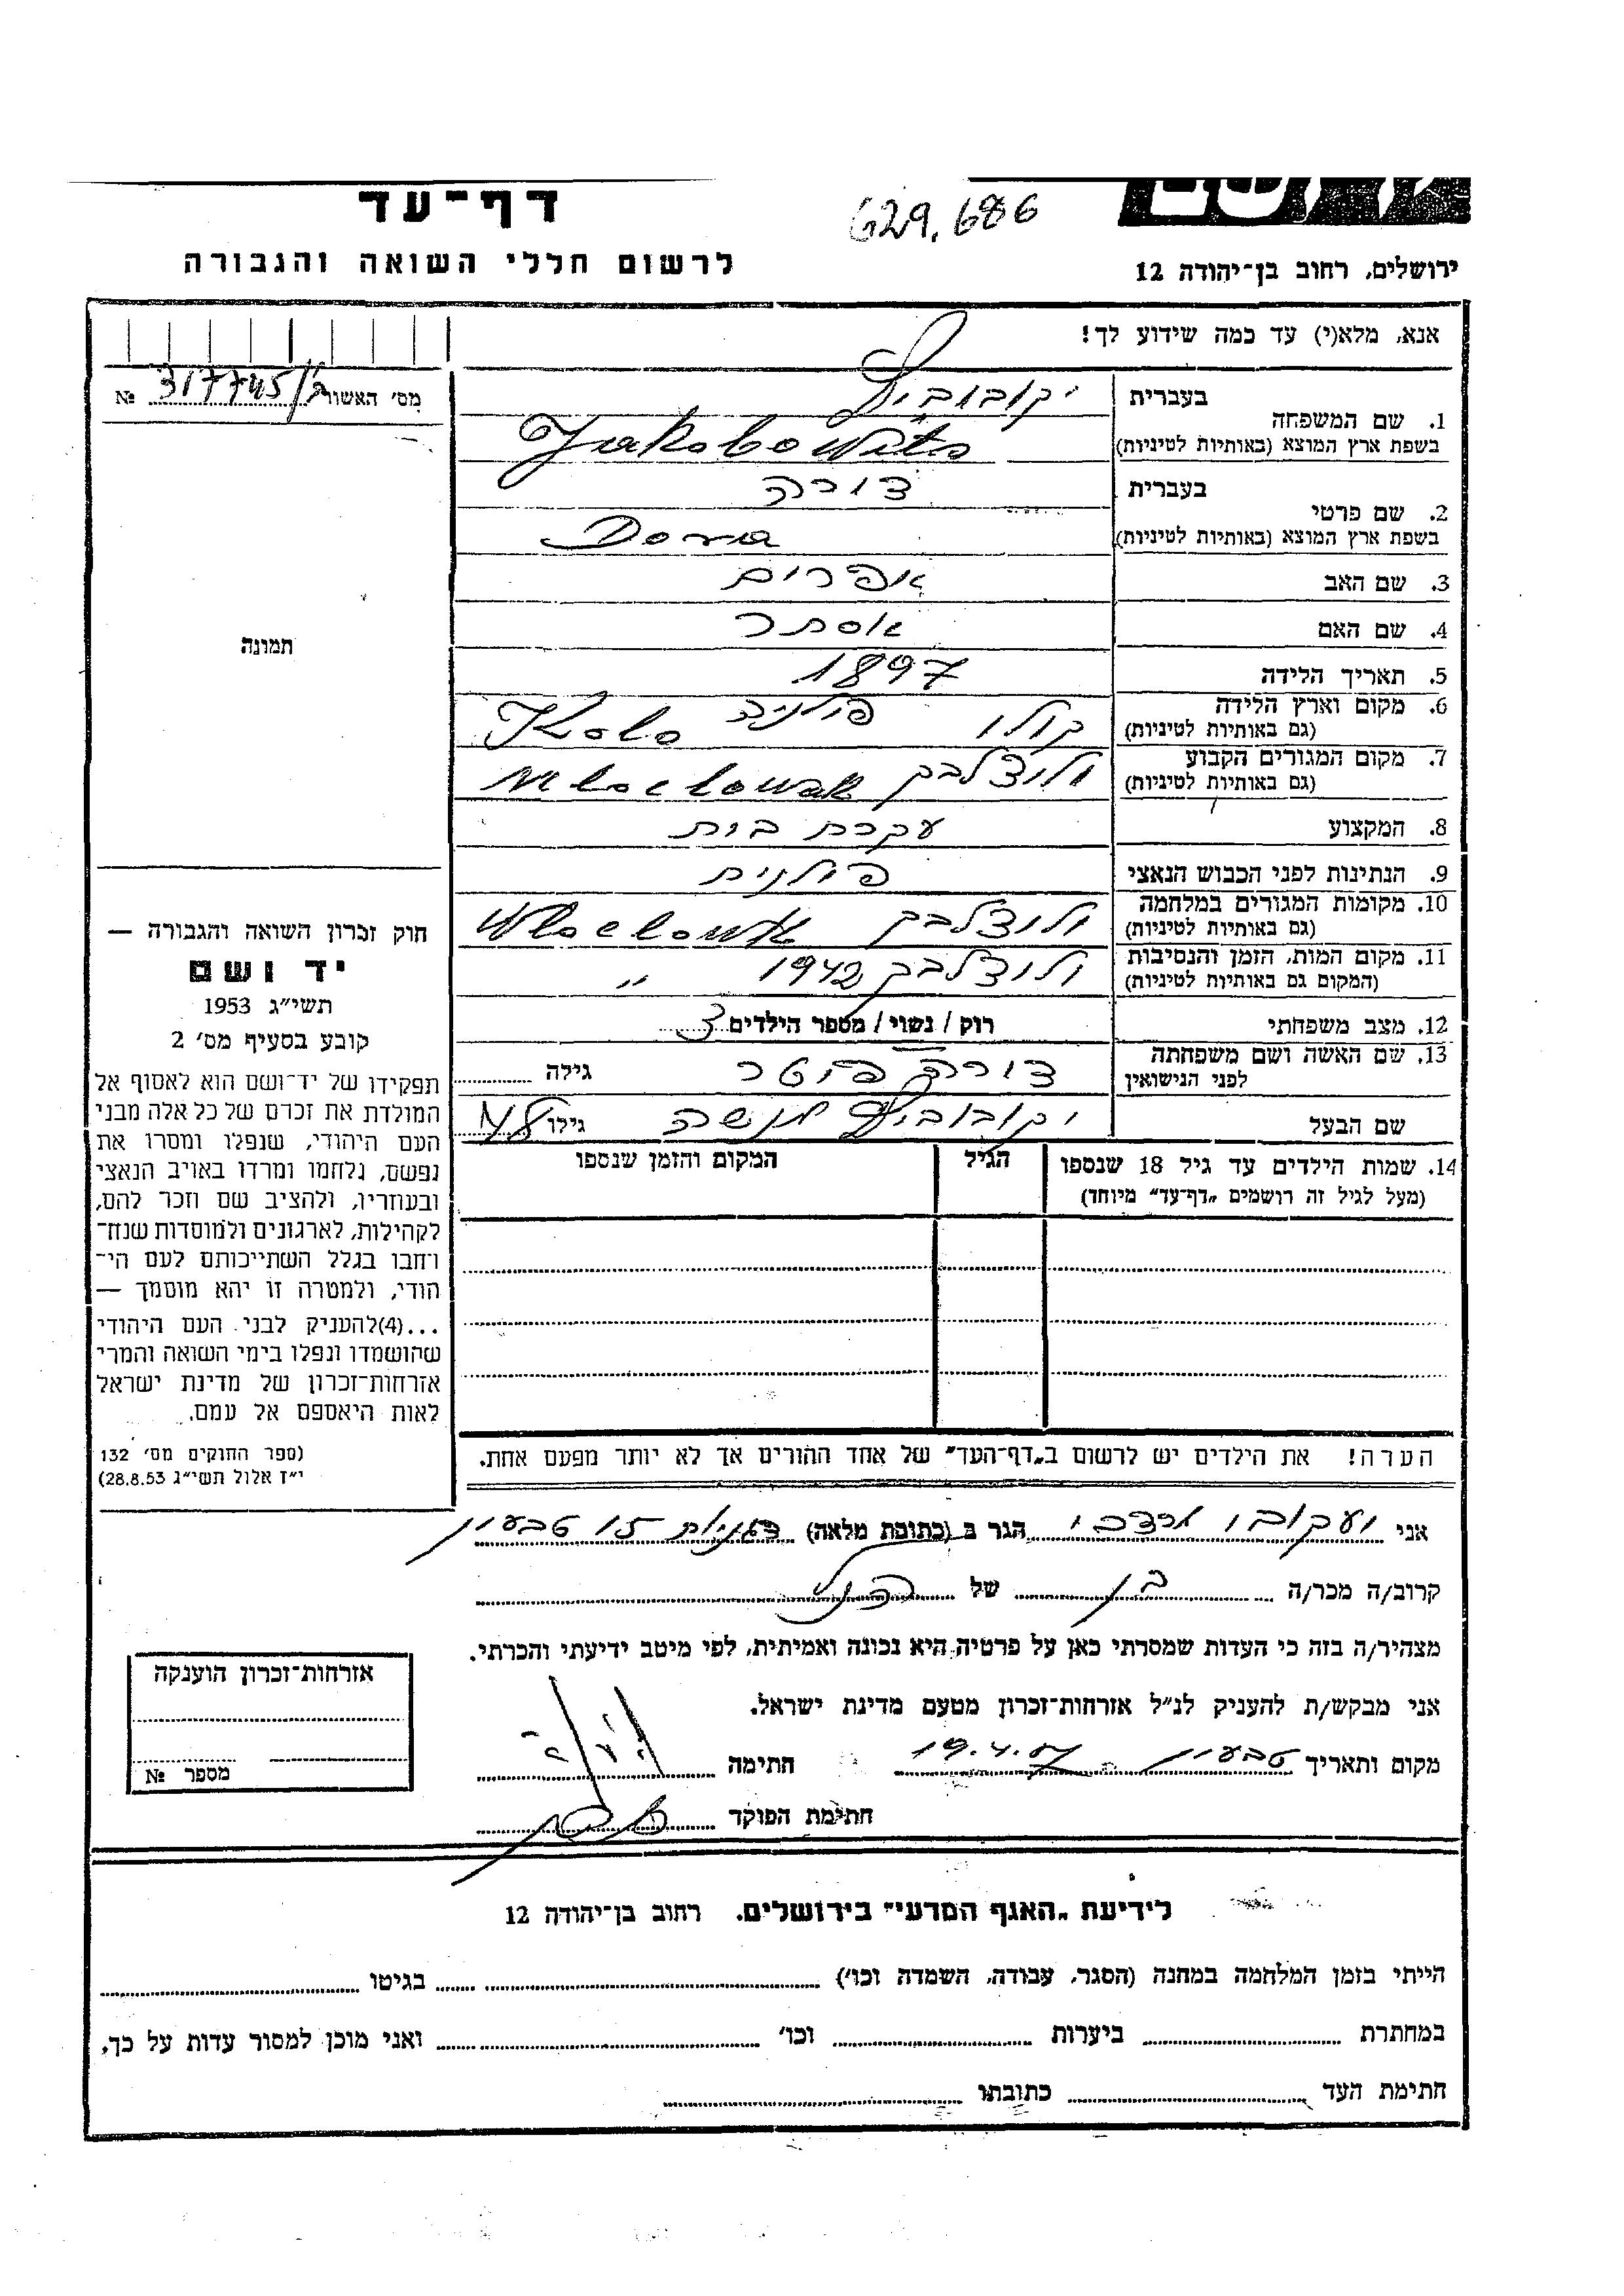 דף־עד
629,686
לרשום חללי השואה והגבורה
ירושלים, רחוב בן־יהודה 12
אנא, מלא(י) עד כמה שידוע לך!
מס׳ האשור 317745 №
בעברית יקובוביץ
1. שם המשפחה
בשפת ארץ המוצא (באותיות לטיניות) Jakobowits
בעברית דורה
2. שם פרטי
בשפת ארץ המוצא (באותיות לטיניות) Dora
3. שם האב אפרים
4. שם האם אסתר
5. תאריך הלידה 1897
6. מקום וארץ הלידה קולו פולניה Kolo
(גם באותיות לטיניות)
7. מקום המגורים הקבוע ולוצלבק
(גם באותיות לטיניות)
8. המקצוע עקרת בית
9. הנתינות לפני הכבוש הנאצי פולנית
10. מקומות המגורים במלחמה ולוצלבק
(גם באותיות לטיניות)
11. מקום המות, הזמן והנסיבות ולוצלבק 1942 ״
(המקום גם באותיות לטיניות)
12. מצב משפחתי רוק / נשוי / מספר הילדים 3
13. שם האשה ושם משפחתה דורה גילה
לפני הנישואין
שם הבעל יקובוביץ מנשה גילו
14. שמות הילדים עד גיל 18 שנספו הגיל המקום והזמן שנספו
(מעל לגיל זה רושמים „דף־עד״ מיוחד)
תמונה
חוק זכרון השואה והגבורה —
יד ושם
תשי״ג 1953
קובע בסעיף מס׳ 2
תפקידו של יד־ושם הוא לאסוף אל
המולדת את זכרם של כל אלה מבני
העם היהודי, שנפלו ומסרו את
נפשם, נלחמו ומרדו באויב הנאצי
ובעוזריו, ולהציב שם וזכר להם,
לקהילות, לארגונים ולמוסדות שנח־
רבו בגלל השתייכותם לעם הי־
הודי, ולמטרה זו יהא מוסמך —
...(4)להעניק לבני העם היהודי
שהושמדו ונפלו בימי השואה והמרי
אזרחות־זכרון של מדינת ישראל
לאות היאספם אל עמם.
(ספר החוקים מס׳ 132
י״ז אלול תשי״ג 28.8.53)
הערה! את הילדים יש לרשום ב„דף־העד״ של אחד ההורים אך לא יותר מפעם אחת.
אני הגר ב (כתובת מלאה) 15 טבעון
קרוב/ה מכר/ה בן של
מצהיר/ה בזה כי העדות שמסרתי כאן על פרטיה היא נכונה ואמיתית, לפי מיטב ידיעתי והכרתי.
אני מבקש/ת להעניק לנ״ל אזרחות־זכרון מטעם מדינת ישראל.
מקום ותאריך טבעון 19.4.57 חתימה
חתימת הפוקד
אזרחות־זכרון הוענקה
מספר №
לידיעת „האגף המדעי״ בירושלים, רחוב בן־יהודה 12
הייתי בזמן המלחמה במחנה (הסגר, עבודה, השמדה וכו׳) בגיטו
במחתרת ביערות וכו׳ ואני מוכן למסור עדות על כך,
חתימת העד כתובתו